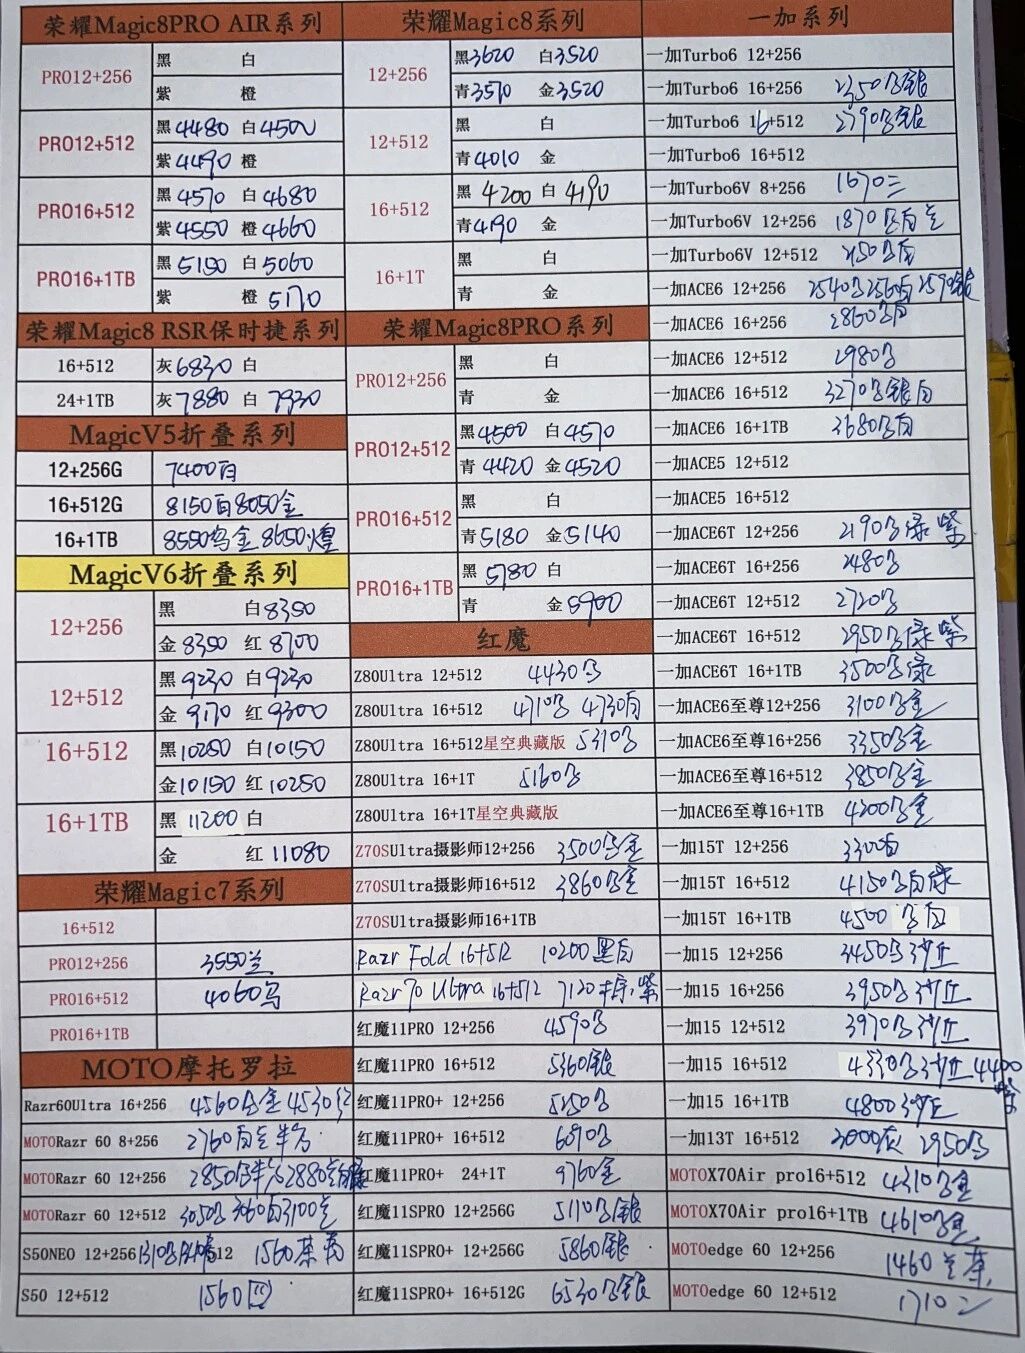 荣耀Magic8PRO AIR系列
PRO12+256 黑 白
紫 橙
PRO12+512 黑4480 白4500
紫4490 橙
PRO16+512 黑4570 白4680
紫4550 橙4660
PRO16+1TB 黑5150 白5060
紫 橙5170
荣耀Magic8 RSR保时捷系列
16+512 灰6830 白
24+1TB 灰7880 白7930
MagicV5折叠系列
12+256G 7400白
16+512G 8150白8050金
16+1TB 8550乌金 8650煌
MagicV6折叠系列
12+256 黑 白8350
金8350 红8700
12+512 黑9230 白9230
金9170 红9300
16+512 黑10250 白10150
金10150 红10250
16+1TB 黑11200 白
金 红11080
荣耀Magic7系列
16+512
PRO12+256 3550兰
PRO16+512 4060乌
PRO16+1TB
MOTO摩托罗拉
Razr60Ultra 16+256 4560 金 4530红
MOTORazr 60 8+256 2760白兰
MOTORazr 60 12+256 2850 2880
MOTORazr 60 12+512 3050 3060白3100兰
S50NEO 12+256 1310 12 1560茶
S50 12+512 1560
荣耀Magic8系列
12+256 黑3620 白3520
青3570 金3520
12+512 黑 白
青4010 金
16+512 黑4200 白4190
青4190 金
16+1T 黑 白
青 金
荣耀Magic8PRO系列
PRO12+256 黑 白
青 金
PRO12+512 黑4500 白4570
青4420 金4520
PRO16+512 黑 白
青5180 金5140
PRO16+1TB 黑5780 白
青 金5900
红魔
Z80Ultra 12+512 4430
Z80Ultra 16+512 4710 4730白
Z80Ultra 16+512星空典藏版 5310
Z80Ultra 16+1T 5160
Z80Ultra 16+1T星空典藏版
Z70SUltra摄影师12+256 3500 金
Z70SUltra摄影师16+512 3860 金
Z70SUltra摄影师16+1TB
Razr Fold 16+512 10200黑白
Razr70 Ultra 16+512 7120 紫
红魔11PRO 12+256 4590
红魔11PRO 16+512 5360银
红魔11PRO+ 12+256 5250
红魔11PRO+ 16+512 6090
红魔11PRO+ 24+1T 9760金
红魔11SPRO 12+256G 5110 银
红魔11SPRO+ 12+256G 5860银
红魔11SPRO+ 16+512G 6530 银
一加系列
一加Turbo6 12+256
一加Turbo6 16+256 2350 银
一加Turbo6 16+512 2790 银
一加Turbo6 16+512
一加Turbo6V 8+256 1670三
一加Turbo6V 12+256 1870 白兰
一加Turbo6V 12+512 2150 白
一加ACE6 12+256 2540 2560白 2590银
一加ACE6 16+256 2860 白
一加ACE6 12+512 2980
一加ACE6 16+512 3270 银白
一加ACE6 16+1TB 3680 白
一加ACE5 12+512
一加ACE5 16+512
一加ACE6T 12+256 2190 绿 紫
一加ACE6T 16+256 2480
一加ACE6T 12+512 2720
一加ACE6T 16+512 2950 绿 紫
一加ACE6T 16+1TB 3500 绿
一加ACE6至尊12+256 3100 金
一加ACE6至尊16+256 3350 金
一加ACE6至尊16+512 3850 金
一加ACE6至尊16+1TB 4200 金
一加15T 12+256 3300
一加15T 16+512 4150 白绿
一加15T 16+1TB 4500 白
一加15 12+256 3450 沙丘
一加15 16+256 3950 沙丘
一加15 12+512 3970 沙丘
一加15 16+512 4330 沙丘 4400紫
一加15 16+1TB 4800沙丘
一加13T 16+512 3000灰 2950
MOTOX70Air pro16+512 4310 金
MOTOX70Air pro16+1TB 4610 金
MOTOedge 60 12+256 1460兰茶
MOTOedge 60 12+512 1710二